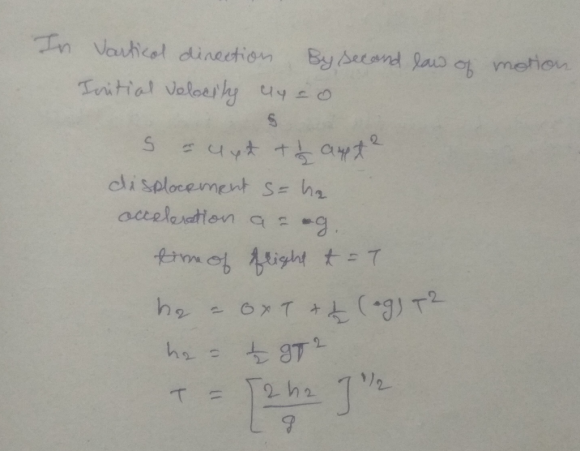 In Vertical direction By second law of motion
Initial Velocity uy = 0
S = uyt + 1/2 ayt²
displacement S = h₂
acceleration a = g.
time of flight t = T
h₂ = 0 × T + 1/2 (g) T²
h₂ = 1/2 gT²
T = [2h₂/g]^1/2